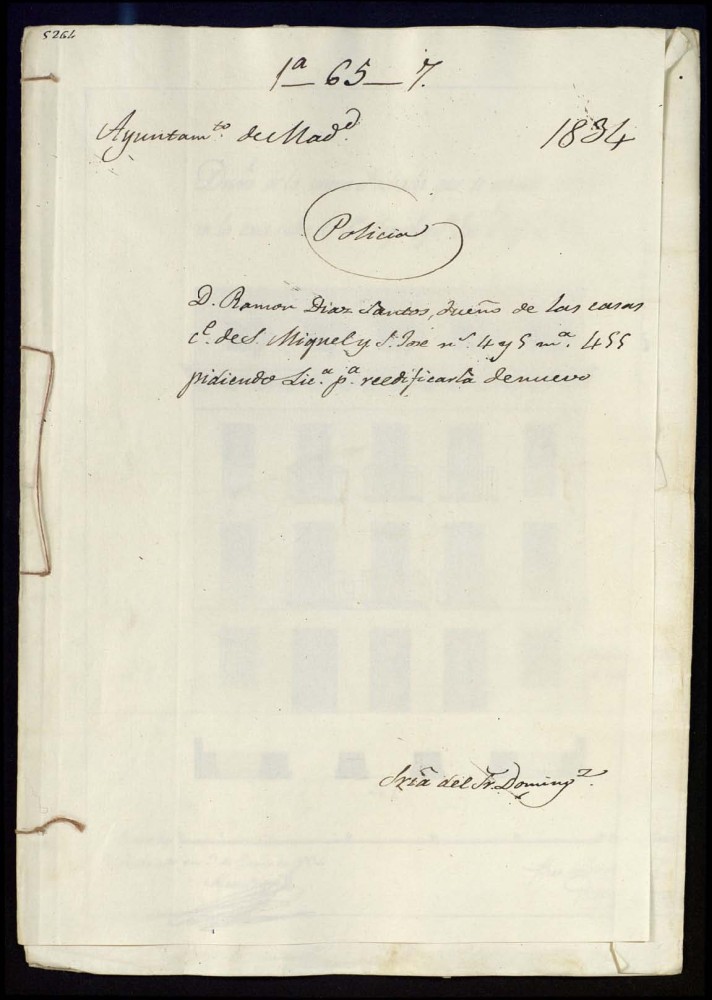 5264
1ª 65 7.
Ayuntam.to de Mad.d 1834
Policia
D. Ramon Diaz Santos, dueño de las casas
c.e de S. Miguel y S. José n.s 4 y 5 m.a 455
pidiendo Lic.a p.a reedificarla de nuevo
Sría del Sr. Doming.z